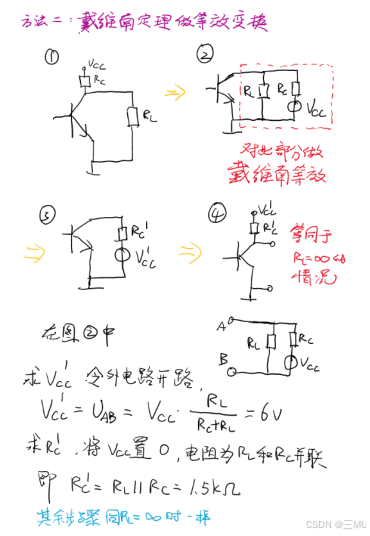 方法二：戴维南定理做等效变换
① VCC RC RL
② RL RC VCC
对此部分做
戴维南等效
③ RC' VCC'
④ VCC' RC'
等同于
RL=∞的
情况
在图②中
A RL RC
B VCC
求VCC' 令外电路开路,
VCC' = UAB = VCC · RL/(RC+RL) = 6V
求RC', 将VCC置0, 电阻为RL和RC并联
即 RC' = RL||RC = 1.5kΩ
其余步骤同RL=∞时一样
CSDN @三MU